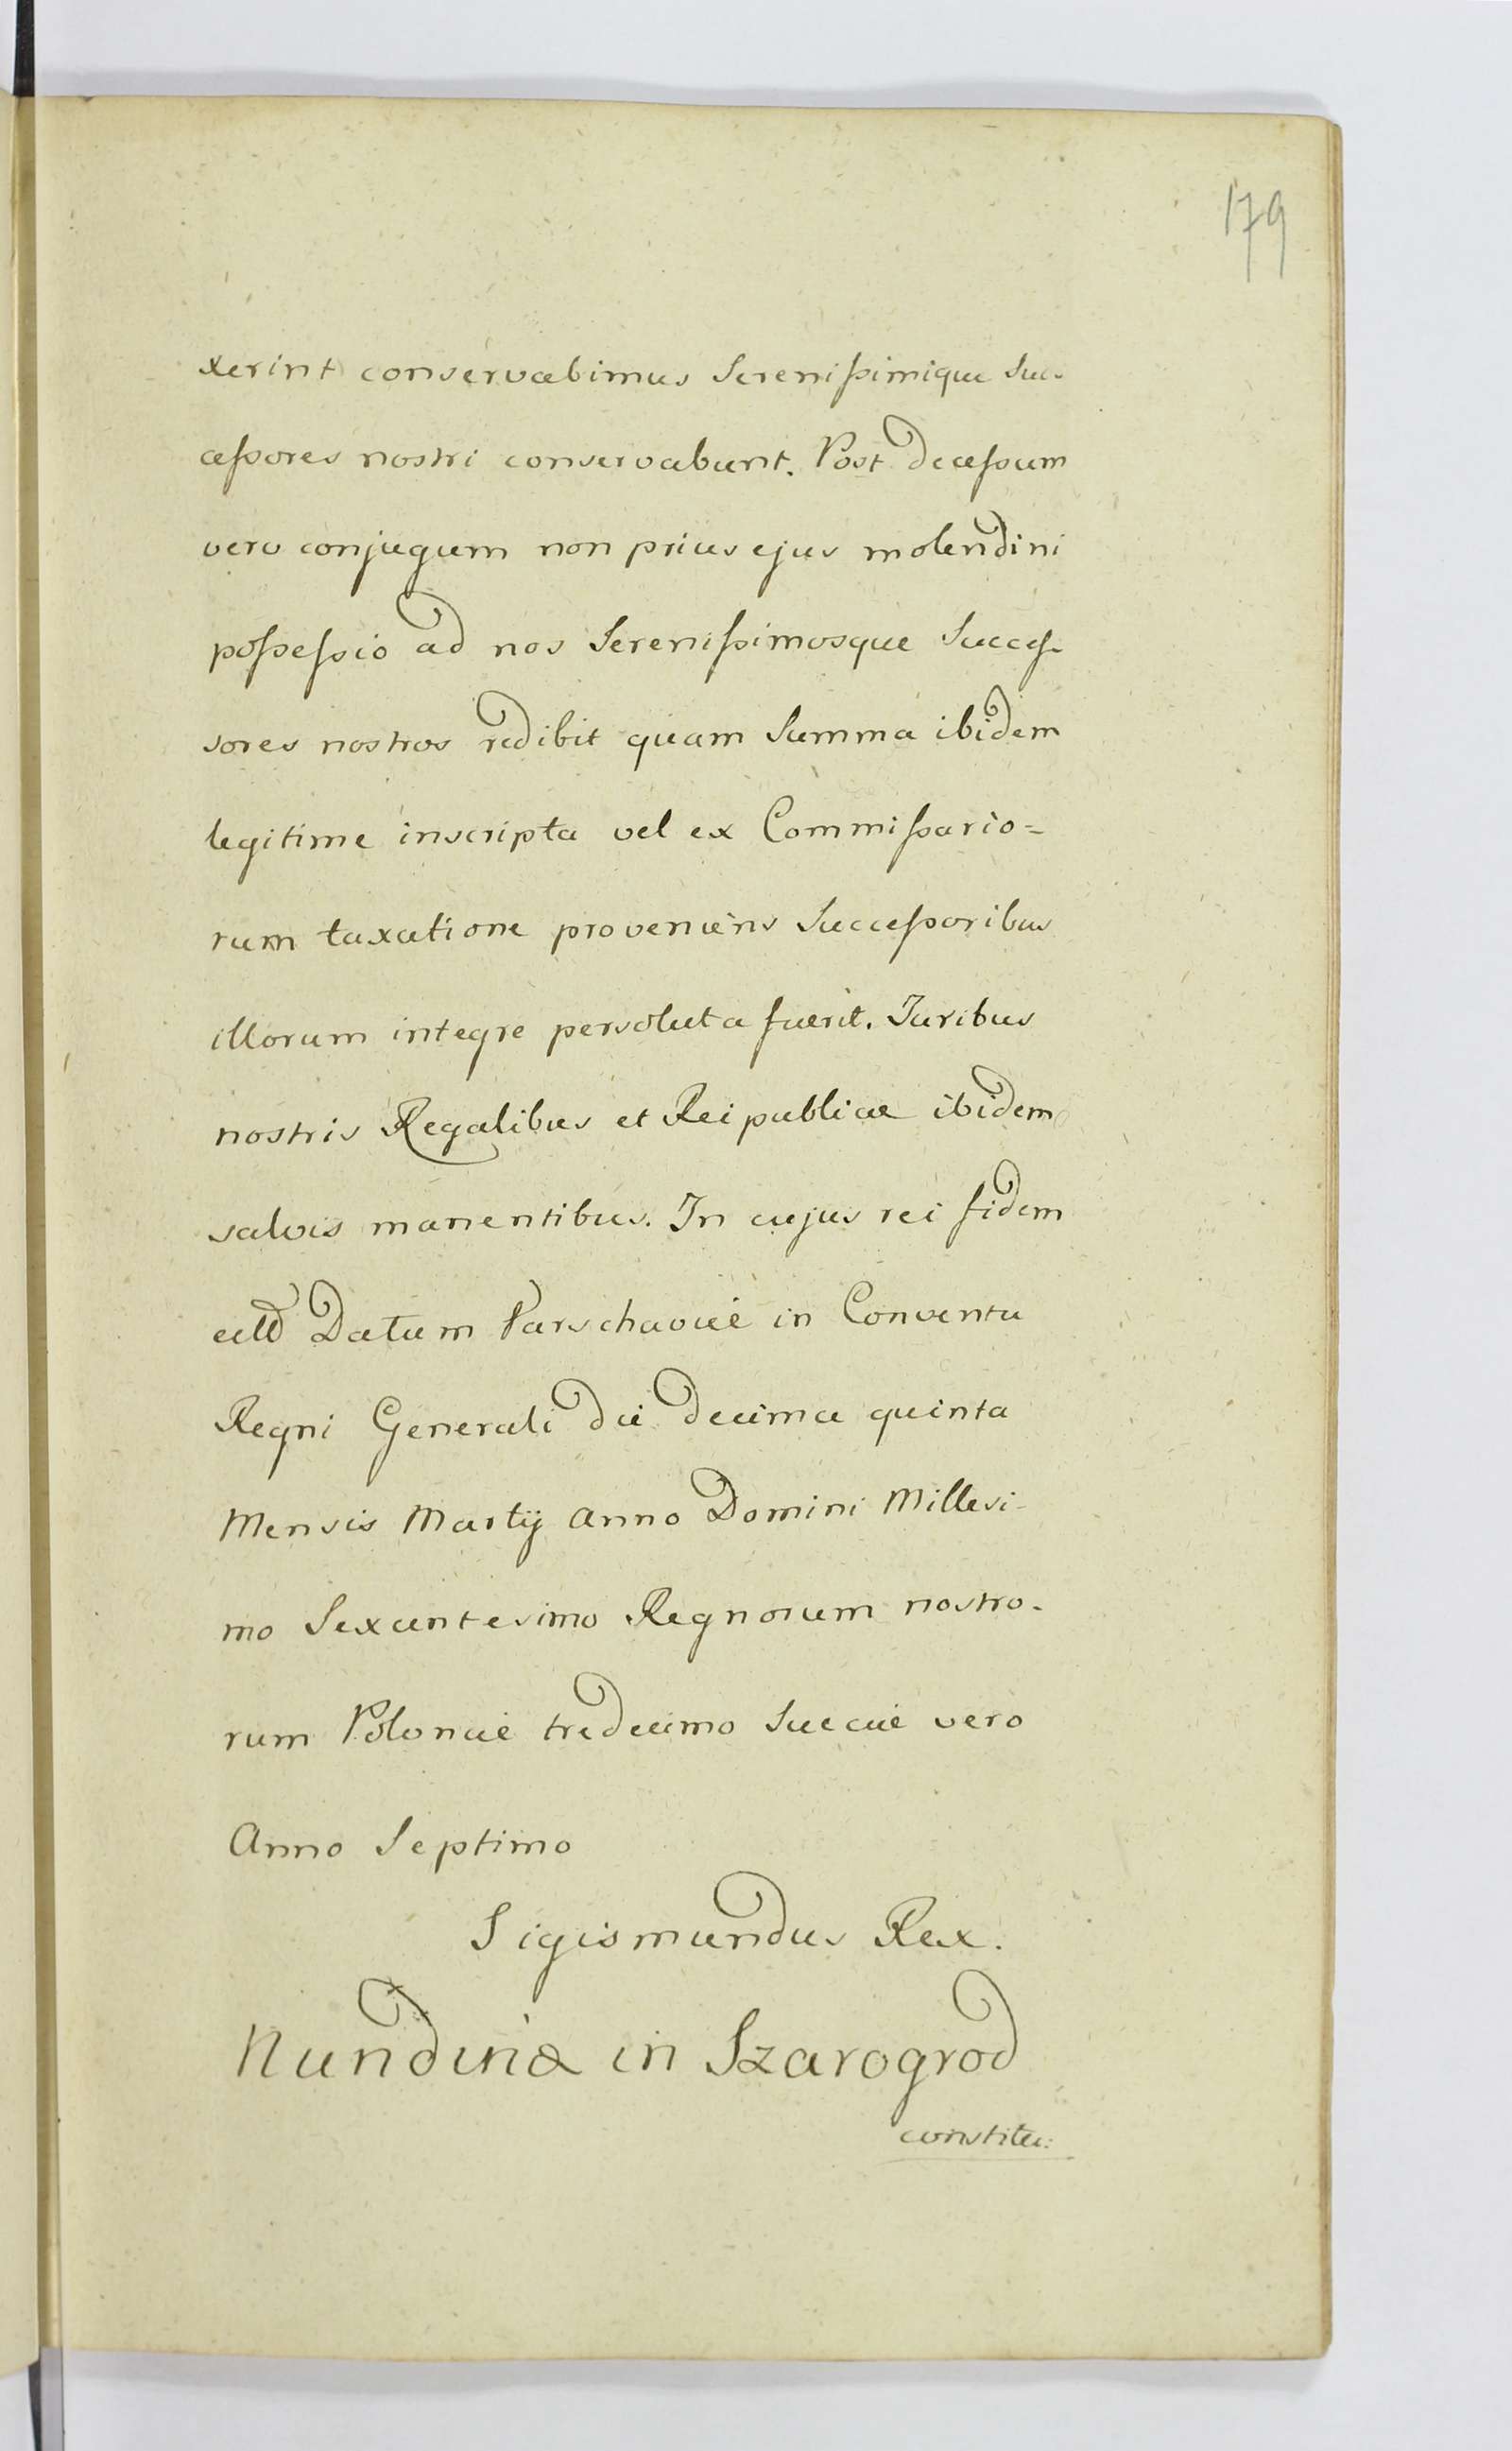 179
xerint conservabimus Serenissimique Suc-
cessores nostri conservabunt. Post decessum
vero conjugum non prius ejus molendini
possessio ad nos Serenissimosque Succes-
sores nostros redibit quam Summa ibidem
legitime inscripta vel ex Commissario=
rum taxatione proveniens Successoribus
illorum integre persoluta fuerit. Juribus
nostris Regalibus et Reipublicae ibidem
salvis manentibus. In cujus rei fidem
Datum Varschaviae in Conventu
Regni Generali die decima quinta
Mensis Martij Anno Domini Millesi-
mo Sexcentesimo Regnorum nostro-
rum Poloniae tredecimo Sueciae vero
Anno Septimo
Sigismundus Rex.
Nundinae in Szarogrod
constitu: